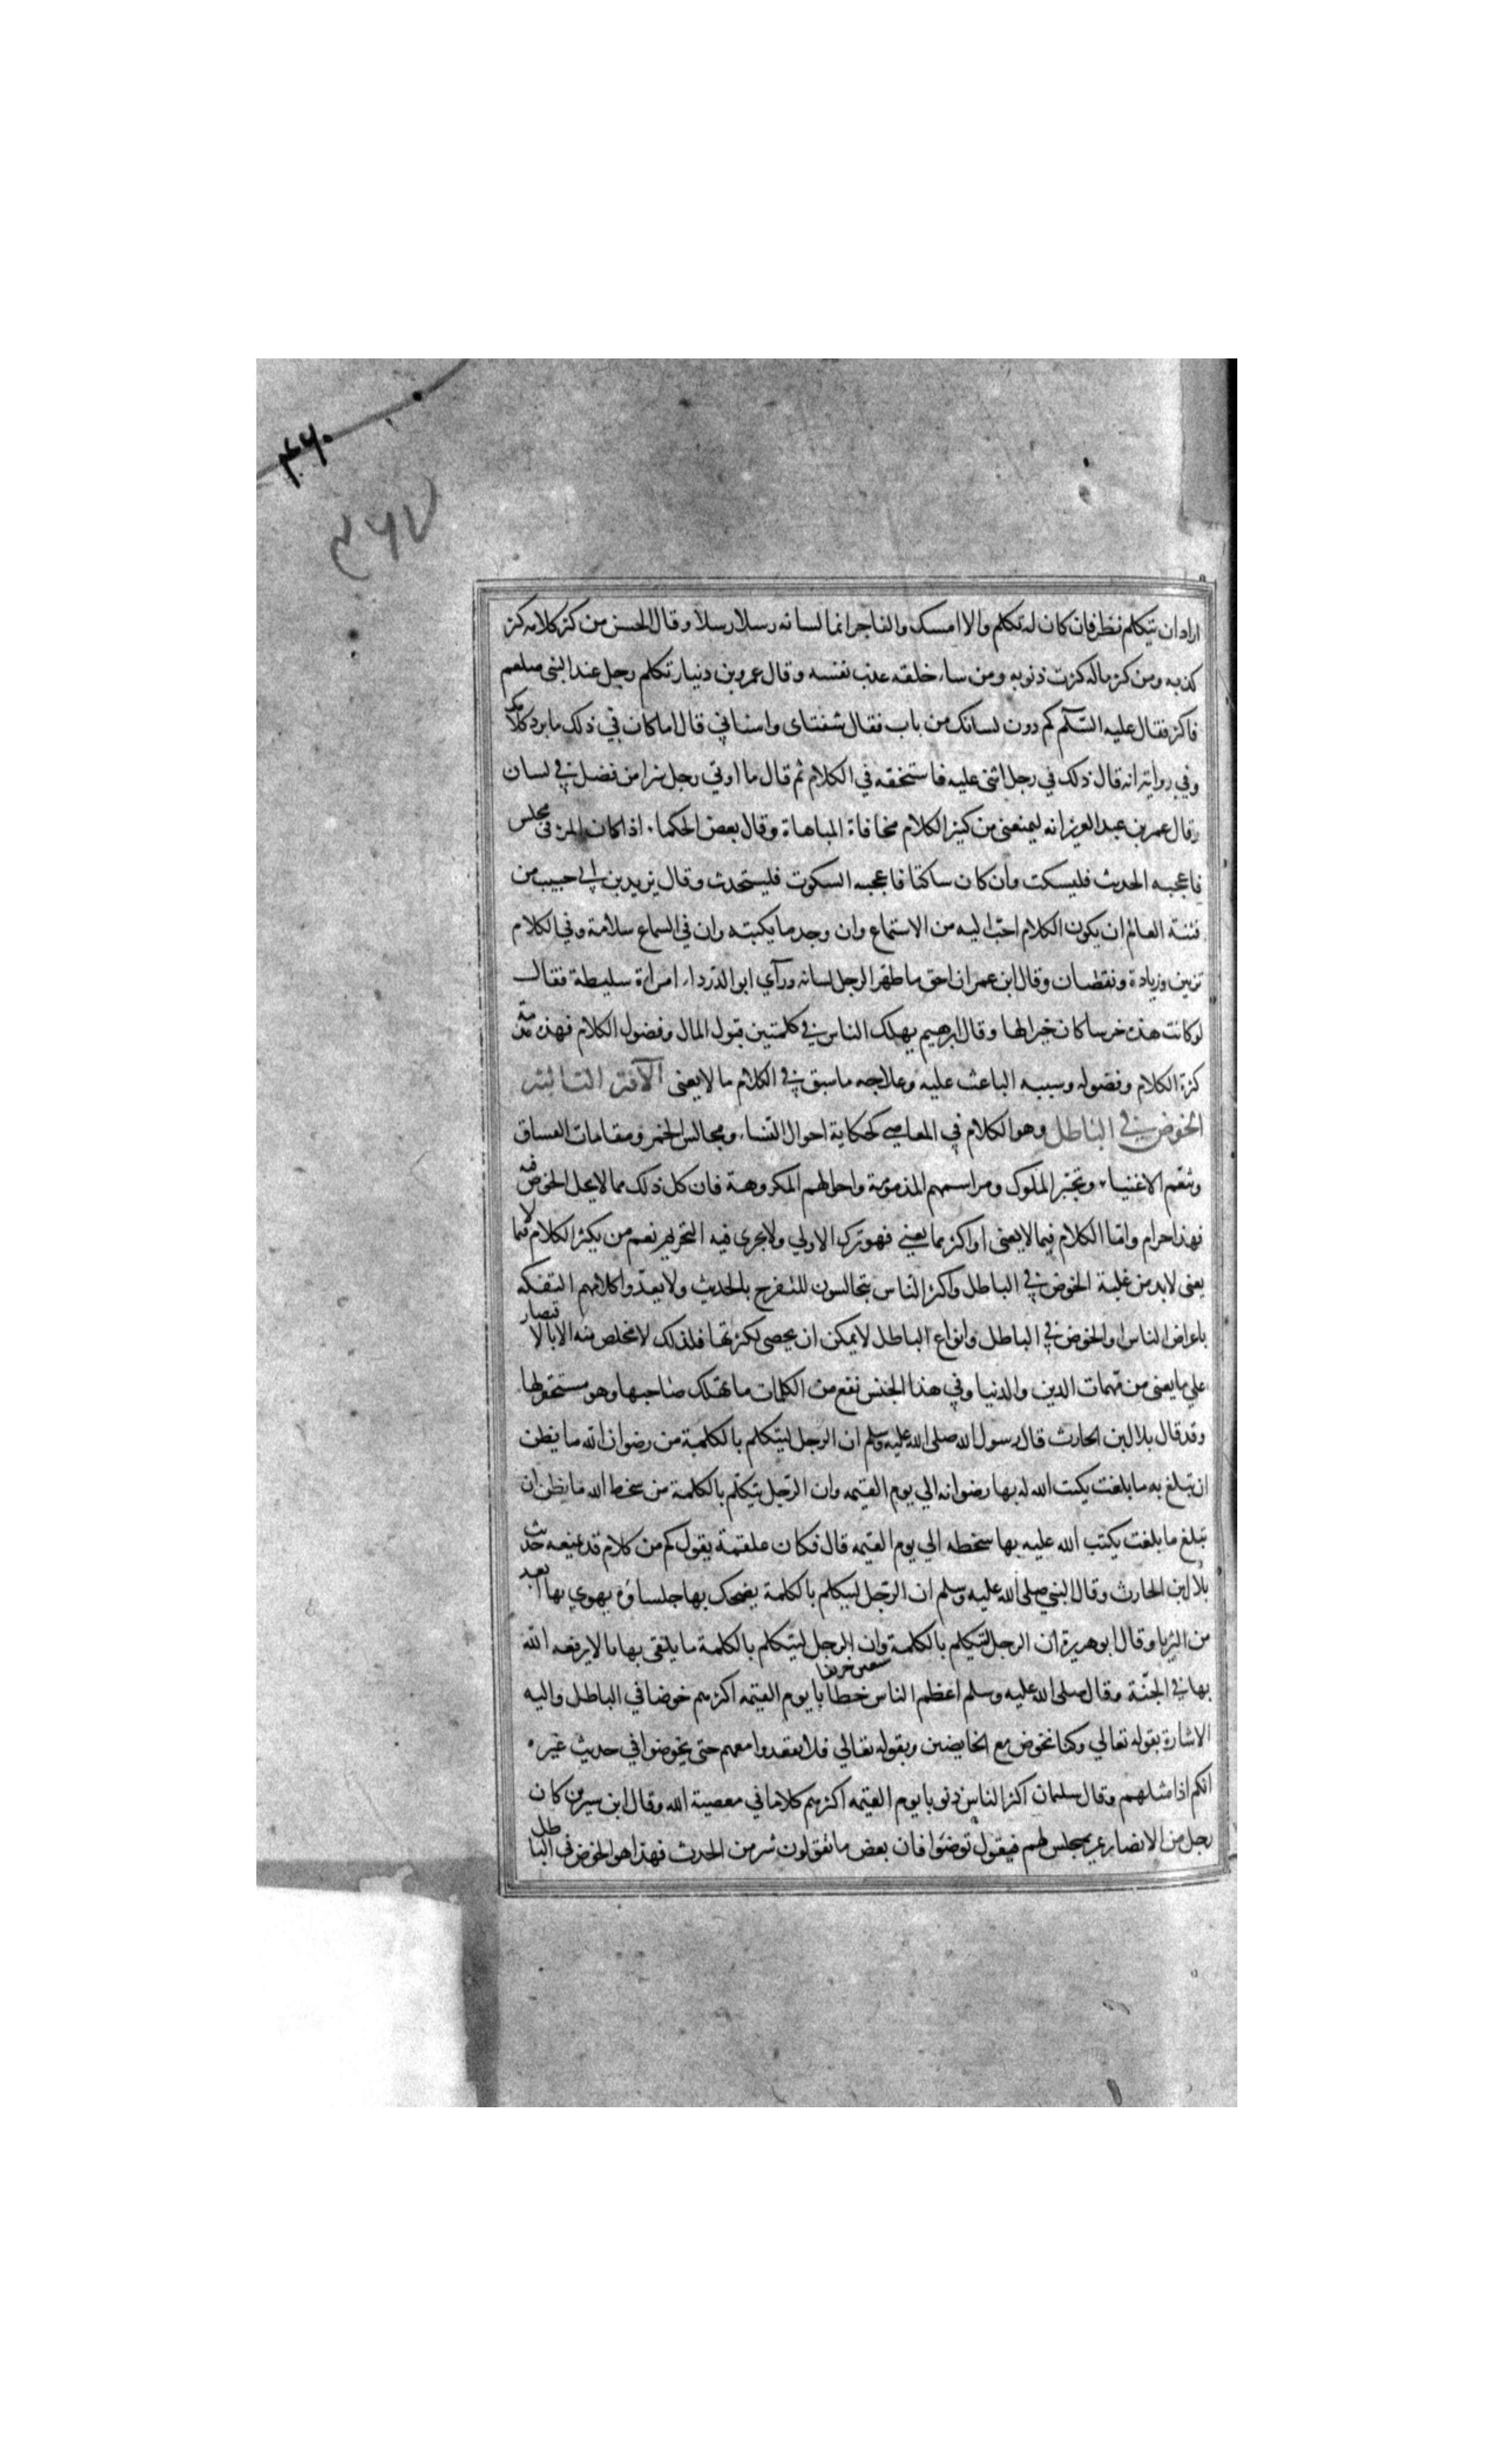 ۴۶۰
۴۶۷
اراد ان يتكلم نظر فان كان له تكلم والا امسك والفاجر انما لسانه رسلا رسلا وقال الحسن من كثر كلامه كثر
كذبه ومن كثر ماله كثرت ذنوبه ومن ساء خلقه عذب نفسه وقال عمرو بن دنيار تكلم رجل عند النبى صلعم
فاكثر فقال عليه السّلم كم دون لسانك من باب فقال شفتاى واسناني قال اما كان في ذلك ما يرد كلامك
وفي رواية انه قال ذلك في رجل اثنى عليه فاستخفه في الكلام ثم قال ما اوتي رجل شرا من فضل في لسان
وقال عمر بن عبد العزيز انه ليمنعنى من كثير الكلام مخافاة المباهاة وقال بعض الحكماء اذا كان المرء في مجلس
فاعجبه الحديث فليسكت وان كان ساكتا فاعجبه السكوت فليتحدث وقال يزيد بن ابي حبيب من
فتنة العالم ان يكون الكلام احبّ اليه من الاستماع وان وجد ما يكبته وان في السماع سلامة وفي الكلام
تزيين وزيادة ونقصان وقال ابن عمر ان احق ما طهر الرجل لسانه ورآي ابو الدرداء امراة سليطة فقال
لو كانت هذه خرسا كان خيرا لها وقال ابرهيم يهلك الناس في كلمتين فبول المال وفضول الكلام فهذه مذمة
كثرة الكلام وفضوله وسببه الباعث عليه وعلاجه ما سبق في الكلام ما لا يعنى الآفة الثالثة
الخوض في الباطل وهو الكلام في المعاصي كحكاية احوال النساء ومجالس الخمر ومقامات الفساق
وتنعّم الاغنياء وتجبّر الملوك ومراسمهم المذمومة واحوالهم المكروهة فان كل ذلك مما لا يحل الخوض فيه
فهذا حرام وامّا الكلام فيما لا يعنى او اكثر مما يعني فهو ترك الاولي ولا يجرى فيه التحريم نعم من يكثر الكلام فيما لا
يعنى لا بد من غلبة الخوض في الباطل واكثر الناس يتجالسون للتفرج بالحديث ولا يعدّوا كلامهم التفكه
باعراض الناس او الخوض في الباطل وانواع الباطل لا يمكن ان يحصى لكثرتها فلذلك لا مخلص منه الا بالاقتصار
علي ما يعنى من مهمات الدين والدنيا وفي هذا الجنس تقع من الكلمات ما تهلك صاحبها وهو مستحقر لها
وقد قال بلال بن الحارث قال رسول الله صلى الله عليه وسلم ان الرجل ليتكلم بالكلمة من رضوان الله ما يظن
ان تبلغ به ما بلغت يكتب الله له بها رضوانه الي يوم القيمه وان الرّجل يتكلّم بالكلمة من سخط الله ما يظن ان
تبلغ ما بلغت يكتب الله عليه بها سخطه الي يوم القيمه قال فكان علقمة يقول كم من كلام قد منعنيه حديث
بلال بن الحارث وقال النبي صلى الله عليه وسلم ان الرّجل ليتكلم بالكلمة يضحك بها جلساؤه يهوي بها ابعد
من الثريا وقال ابو هريرة ان الرجل ليتكلم بالكلمة وان الرجل ليتكلم بالكلمة ما يلقى بها بالا يرفعه الله
بها في الجنّة وقال صلى الله عليه وسلم اعظم الناس خطايا يوم القيمه اكثرهم خوضا في الباطل واليه
الاشارة بقوله تعالي وكنا نخوض مع الخايضين وبقوله تعالي فلا تقعدوا معهم حتى يخوضوا في حديث غيره
انكم اذا مثلهم وقال سلمان اكثر الناس ذنوبا يوم القيمه اكثرهم كلاما في معصية الله وقال ابن سيرين كان
رجل من الانصار يمر بمجلس لهم فيقول توضوا فان بعض ما تقولون شر من الحدث فهذا هو الخوض في الباطل